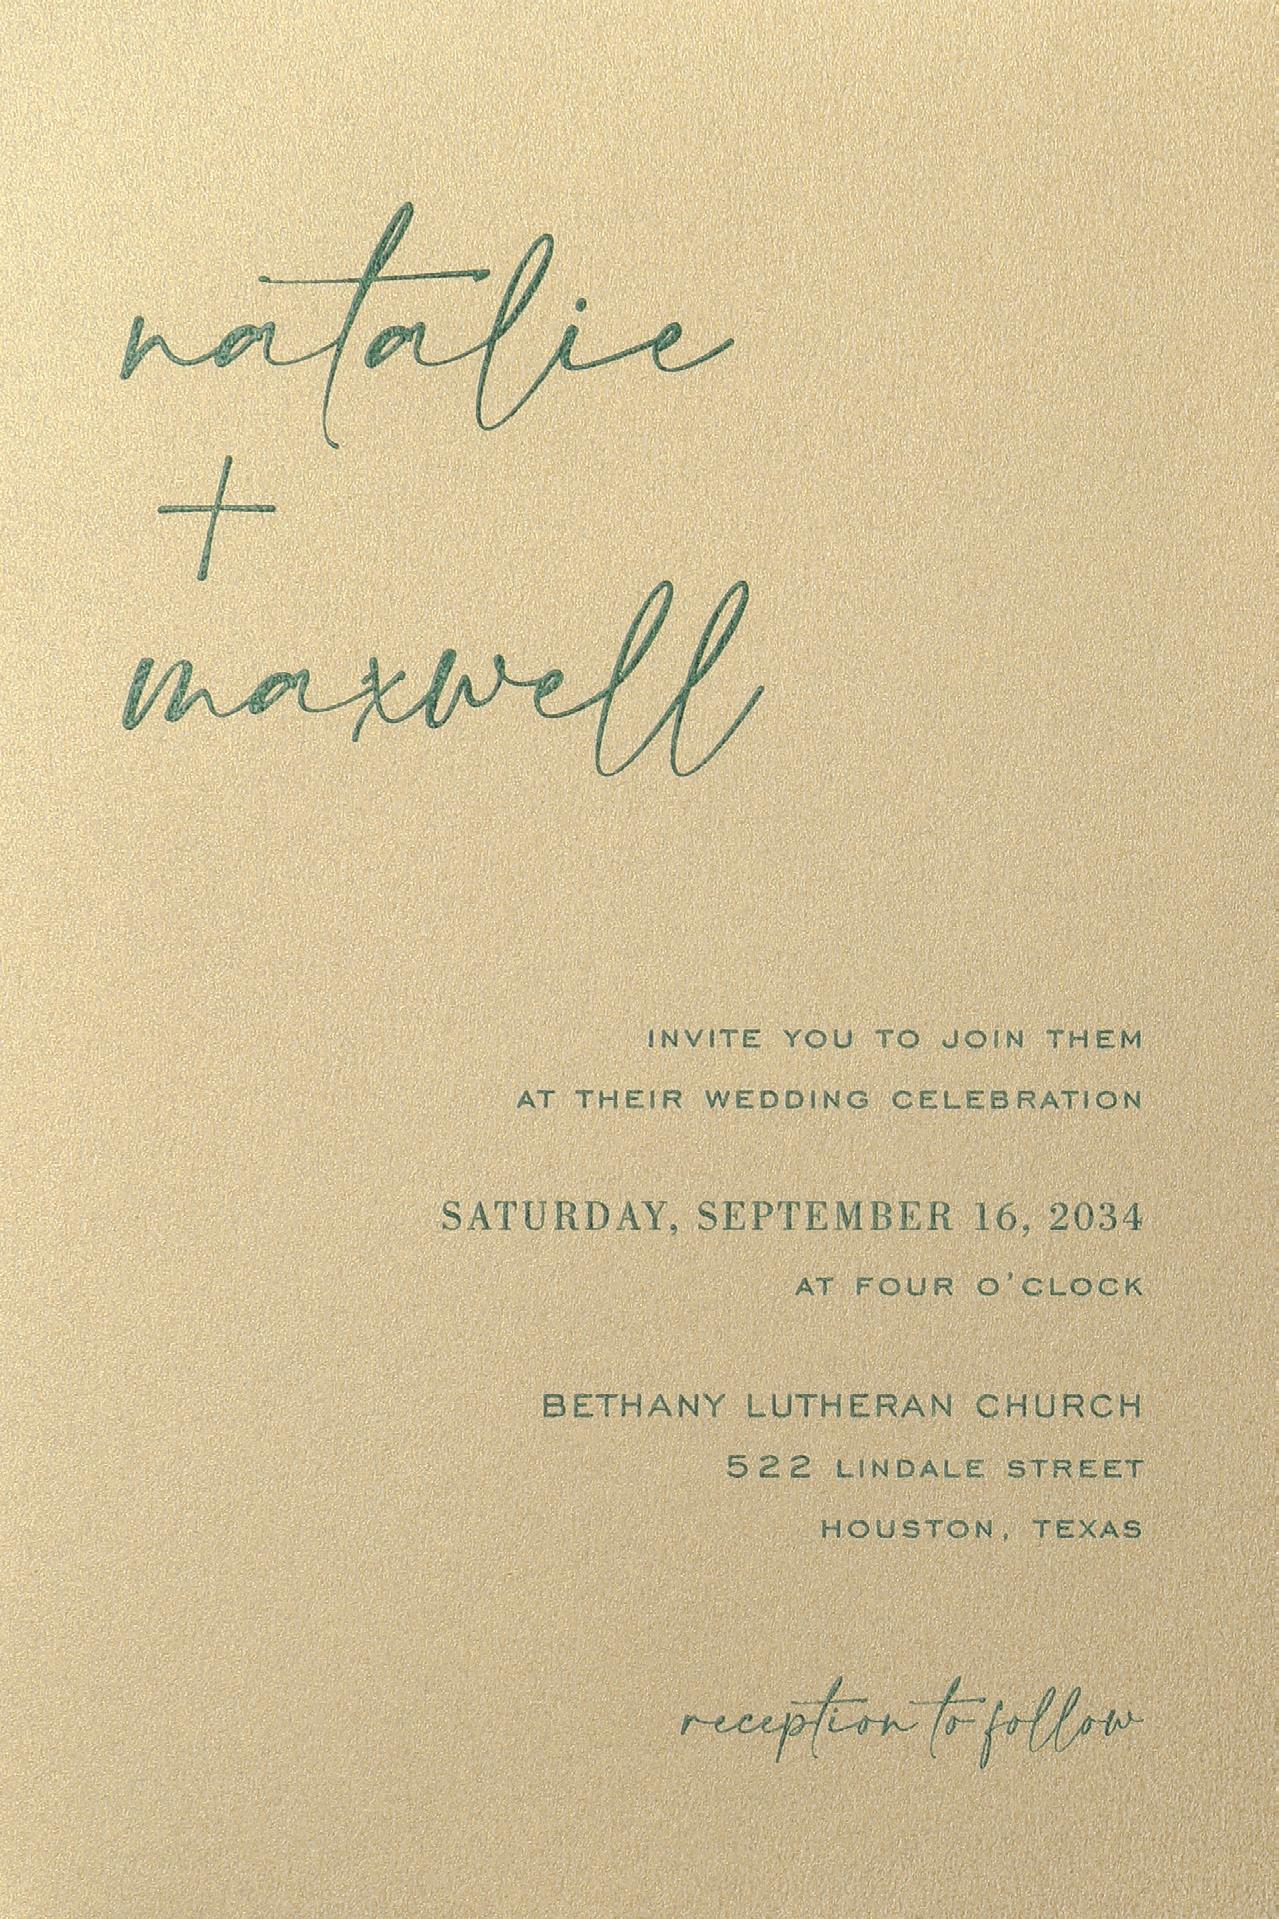 natalie
+
maxwell
INVITE YOU TO JOIN THEM
AT THEIR WEDDING CELEBRATION
SATURDAY, SEPTEMBER 16, 2034
AT FOUR O'CLOCK
BETHANY LUTHERAN CHURCH
522 LINDALE STREET
HOUSTON, TEXAS
reception to follow